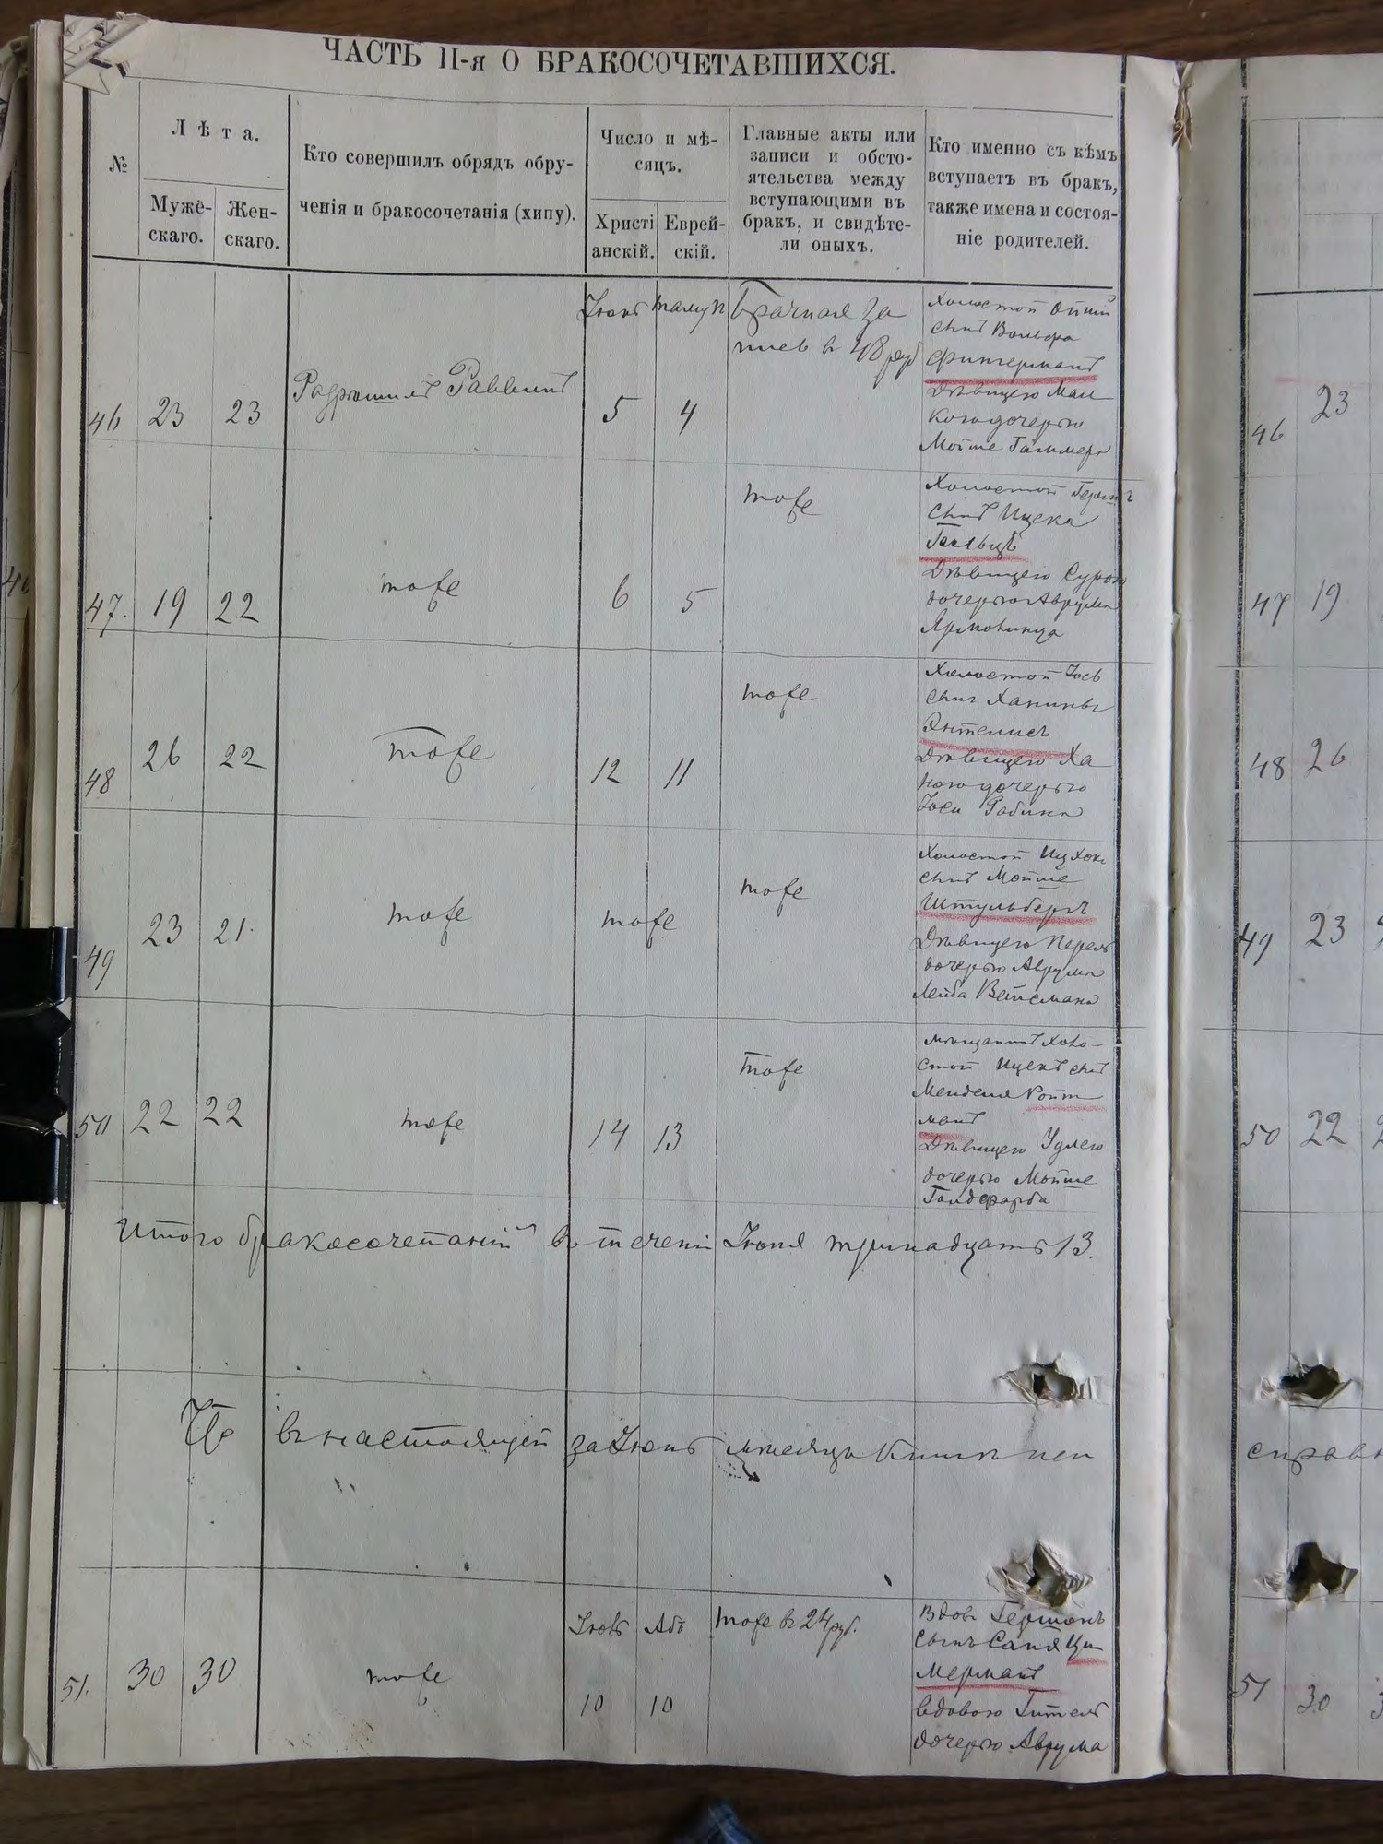 ЧАСТЬ II-я О БРАКОСОЧЕТАВШИХСЯ.
№
Лѣта.
Муже-
скаго.
Жен-
скаго.
Кто совершилъ обрядъ обру-
ченія и бракосочетанія (хипу).
Число и мѣ-
сяцъ.
Христі
анскій.
Еврей-
скій.
Главные акты или
записи и обсто-
ятельства между
вступающими въ
бракъ, и свидѣте-
ли оныхъ.
Кто именно съ кѣмъ
вступаетъ въ бракъ,
также имена и состоя-
ніе родителей.
46 23 23
Раввинъ
Іюнь
5
4
Брачная за
пись в 48 руб
Холостой
сынъ Вольфа
Фингерманъ
Дѣвицею Мал
кою дочерью
Мойше
47. 19 22
тоже
6 5
тоже
Холостой
сынъ Ицека
Дѣвицею Сурою
дочерью Аврума
Ярмолинца
48 26 22
тоже
12 11
тоже
Холостой Іось
сынъ
Дѣвицею Ха
ною дочерью
Іоси Рабина
49 23 21.
тоже
тоже
тоже
Холостой Ицхокъ
сынъ Мойше
Штульбергъ
Дѣвицею Перель
дочерью Аврума
Лейба Вейсмана
50 22 22
тоже
14 13
тоже
Мѣщанинъ Холо-
стой Ицекъ сынъ
Менделя Ройт
манъ
Дѣвицею Удлею
дочерью Мойше
Гольдфарба
Итого бракосочетаній въ теченіи Іюня тринадцать 13.
Что в настоящей за Іюнь мѣсяцъ книги
51. 30 30
тоже
Іюль
10
Абъ
10
тоже в 24 руб.
Вдов Гершонъ
сынъ Саня Ци-
мерманъ
вдовою Гитель
дочерью Аврума
46 23
47 19
48 26
49 23
50 22
справ
51 30